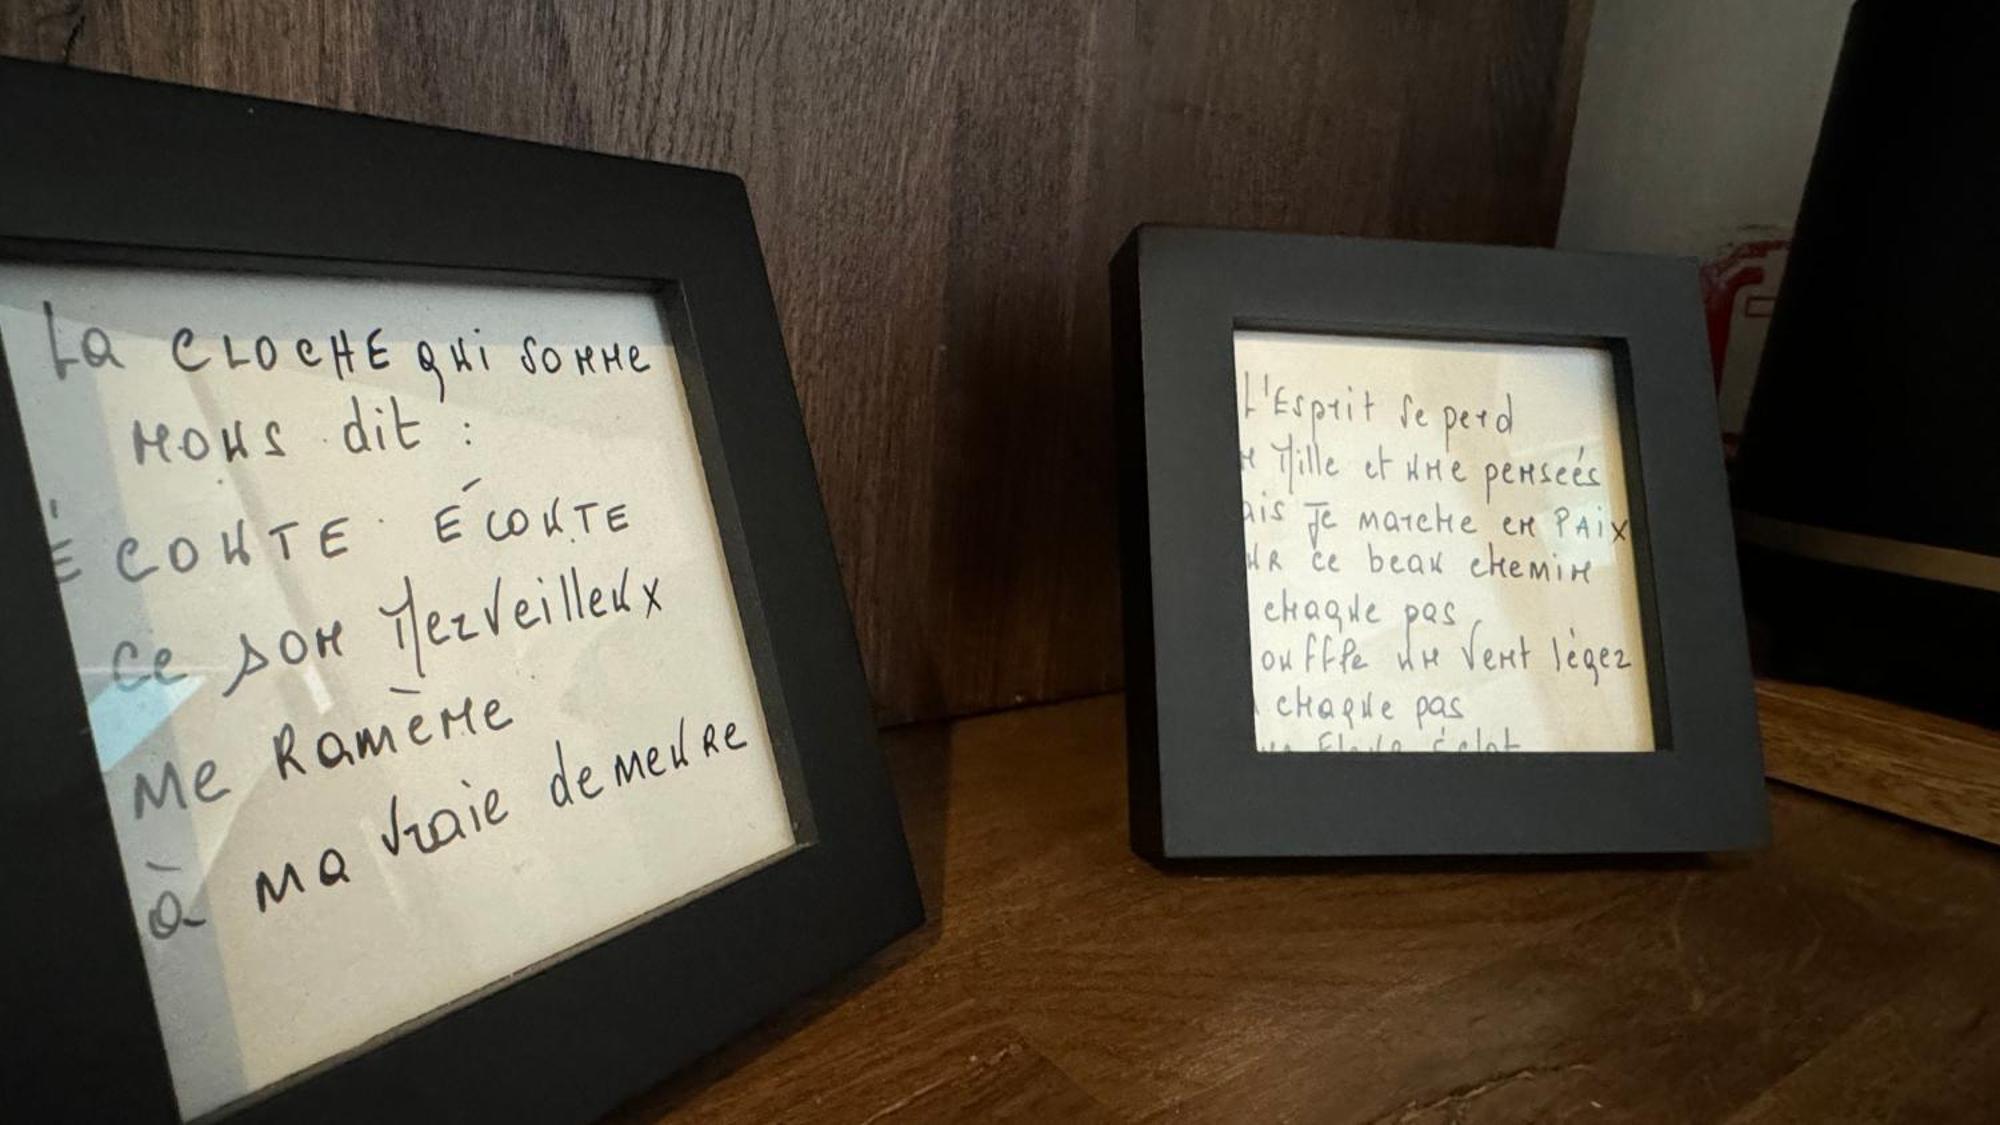 La CLOCHE qui sonne
nous dit :
ÉCOUTE ÉCOUTE
ce son Merveilleux
me Ramène
à ma vraie demeure
L'Esprit se perd
Mille et une penseés
ais Je marche en PAix
uR ce beau chemin
chaque pas
ouffle un Vent léger
chaque pas